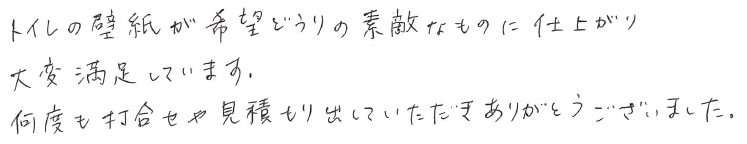 トイレの壁紙が希望どうりの素敵なものに仕上がり
大変満足しています.
何度も打合せや見積もり出していただきありがとうございました.